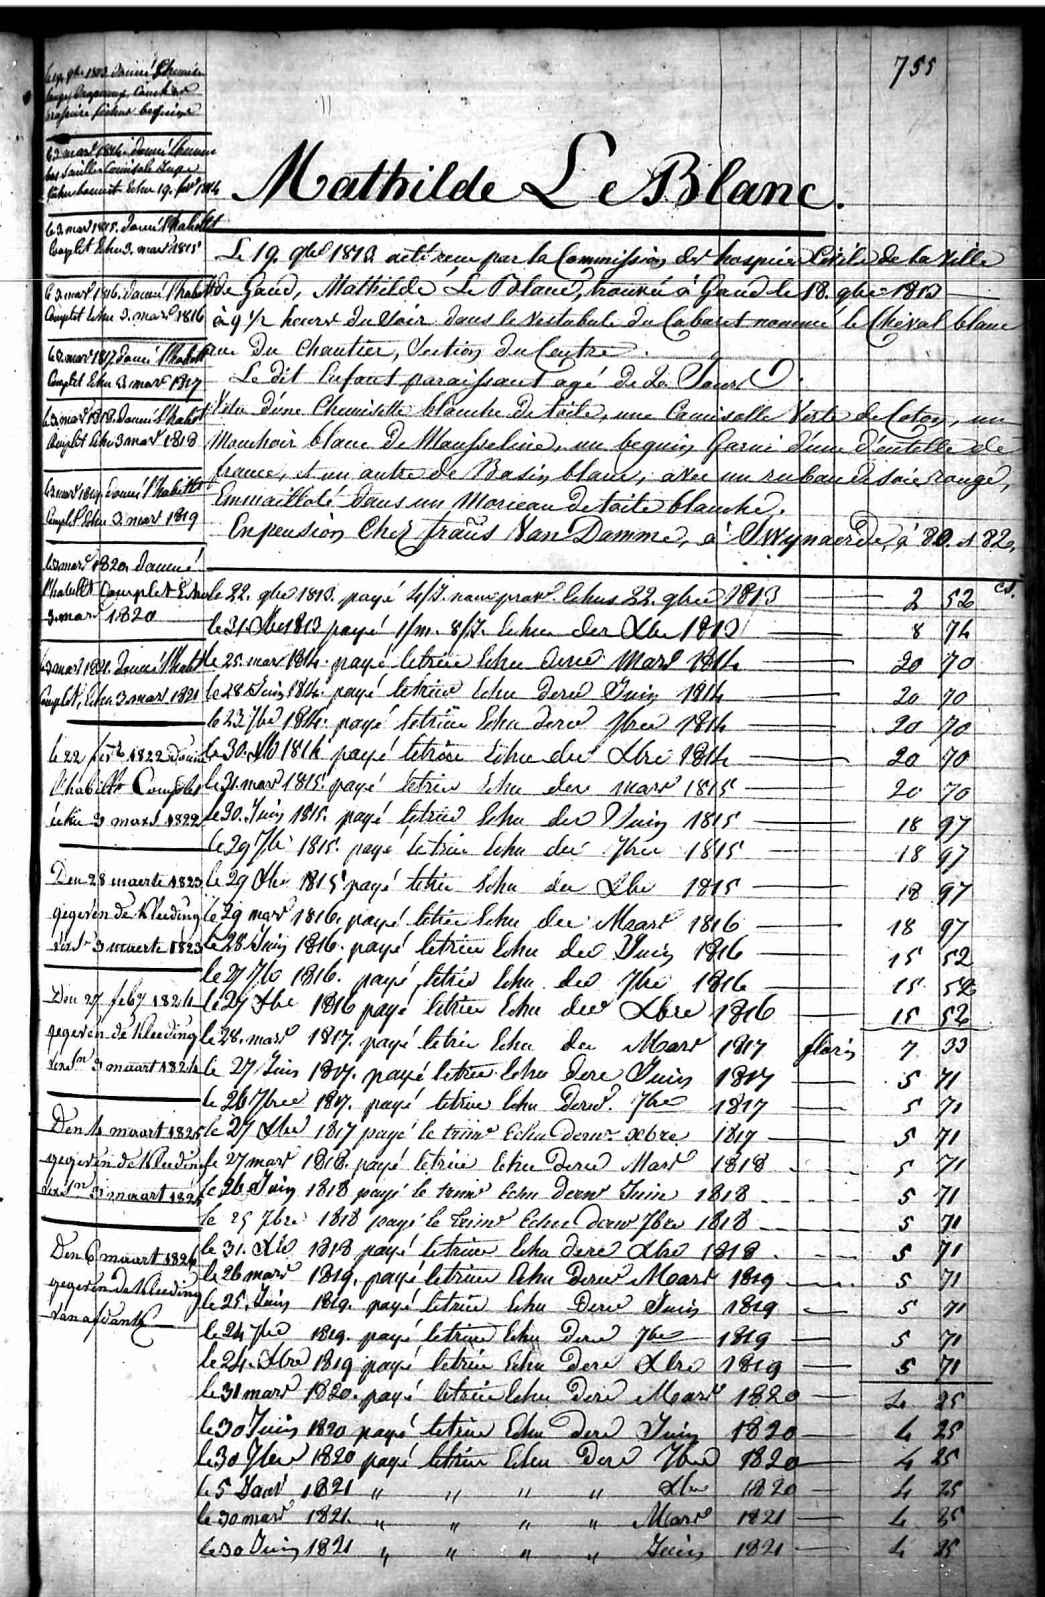 755
Mathilde Le Blanc.
Le 19. gbre 1813 été reçu par la Commission des hospices Civils de la Ville
de Gand, Mathilde Le Blanc, trouvée à Gand le 18. gbre 1813
à 9 1/2 heures du Soir dans le Vestibule du Cabaret nommé le Cheval blanc
rue du Chantier, Section du Centre.
Le dit Enfant paraissant agé de Jours.
Vêtu d'une Chemisette blanche de toile, une Camisolle Verte de Coton, un
Mouchoir blanc De Mousseline, un beguin Garni d'une Dentelle de
france, et un autre de Basin blanc, avec un ruban de soie rouge,
Emmailloté dans un Morceau de toile blanche.
En pension Chez frans Van Damme, à Swynaerde, à 80. et 82.
le 3. mars 1815. Donné l'habillt
Complet Echu 3. mars 1815
le 3. mars 1816. Donné l'habillt
Complet Echu 3. mars 1816
le 3. mars 1817 Donné l'habillt
Complet Echu 3 mars 1817
le 3 mars 1818. Donné l'habillt
Complet Echu 3 mars 1818
le 3 mars 1819. Donné l'habillt
Complet Echu 3. mars 1819
le 3 mars 1820. Donné
l'habillt Complet Echu
3. mars 1820
le 3 mars 1821. Donné l'habillt
Complet, Echu 3 mars 1821
le 22 fevr 1822 Donné
l'habillt Complet
échu 3 mars 1822
Den 28 maerte 1823
gegeven de Kleeding
3 maerte 1823
Den 27 feby 1824
gegeven de Kleeding
3 maart 1824
Den 4 maart 1825
gegeven de Kleeding
3 maart 1825
Den 6 maart 1826
gegeven de Kleeding
cs.
le 22. gbre 1813. payé 4/J. Echus 22. gbre 1813 2 52
le 31 Xbre 1813 payé 1/m. 8/J. Echu der Xbre 1813 8 74
le 25. mars 1814. payé le trim Echu dere Mars 1814 20 70
le 28 Juin 1814. payé le trim Echu dere Juin 1814 20 70
le 23 7bre 1814. payé le trim Echu dere 7bre 1814 20 70
le 30. Xbre 1814 payé le trim Echu der Xbre 1814 20 70
le 31 mars 1815. payé le trim Echu der mars 1815 20 70
le 30. Juin 1815. payé le trim Echu der Juin 1815 18 97
le 29 7bre 1815. payé le trim Echu der 7bre 1815 18 97
le 29 Xbre 1815 payé le trim Echu der Xbre 1815 18 97
le 29 mars 1816. payé le trim Echu der Mars 1816 18 97
le 28 Juin 1816. payé le trim Echu der Juin 1816 15 52
le 27 7bre 1816. payé le trim Echu der 7bre 1816 15 52
le 27 Xbre 1816 payé le trim Echu der Xbre 1816 15 52
le 28. mars 1817. payé le trim Echu der Mars 1817 florin 7 33
le 27 Juin 1817. payé le trim Echu dere Juin 1817 5 71
le 26 7bre 1817. payé le trim Echu dere 7bre 1817 5 71
le 27 Xbre 1817 payé le trimr Echu dernr Xbre 1817 5 71
le 27 mars 1818. payé le trim Echu dere Mars 1818 5 71
le 26 Juin 1818 payé le trimr Echu dernr Juin 1818 5 71
le 25 7bre 1818 payé le trimr Echu dernr 7bre 1818 5 71
le 31. Xbre 1818 payé le trim Echu dere Xbre 1818 5 71
le 26 mars 1819. payé le trim Echu dere Mars 1819 5 71
le 25. Juin 1819. payé le trim Echu dere Juin 1819 5 71
le 24 7bre 1819. payé le trim Echu dere 7bre 1819 5 71
le 24. Xbre 1819 payé le trim Echu dere Xbre 1819 5 71
le 31 mars 1820. payé le trim Echu dere Mars 1820 4 25
le 30 Juin 1820 payé le trim Echu dere Juin 1820 4 25
le 30 7bre 1820 payé le trim Echu dere 7bre 1820 4 25
le 5 Janv 1821 " " " " Xbre 1820 4 25
le 30 mars 1821. " " " " Mars 1821 4 25
le 30 Juin 1821 " " " " Juin 1821 4 25